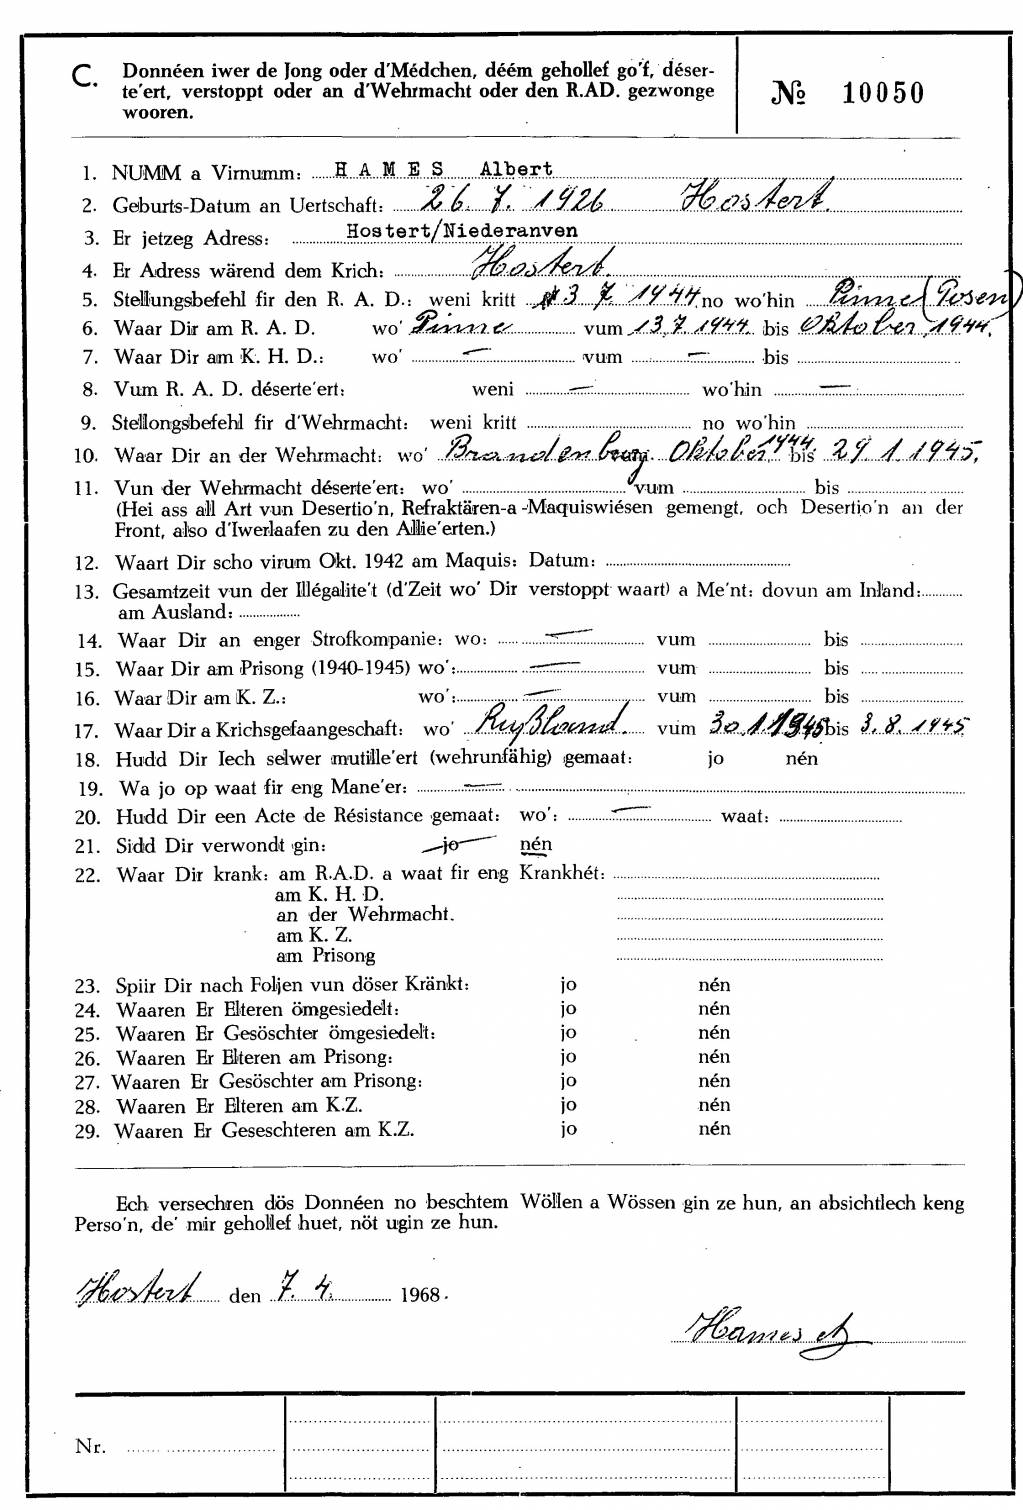 C. Donnéen iwer de Jong oder d'Médchen, déém gehollef go'f, déser-
te'ert, verstoppt oder an d'Wehrmacht oder den R.AD. gezwonge
wooren.
№ 10050
1. NUMM a Virnumm: HAMES Albert
2. Geburts-Datum an Uertschaft: 26. 7. 1926 Hostert.
3. Er jetzeg Adress: Hostert/Niederanven
4. Er Adress wärend dem Krich: Hostert.
5. Stellungsbefehl fir den R. A. D.: weni kritt 3 7. 1944 no wo'hin Pinne (Posen)
6. Waar Dir am R. A. D. wo' Pinne vum 13.7.1944. bis Oktober 1944.
7. Waar Dir am K. H. D.: wo' — vum — bis
8. Vum R. A. D. déserte'ert: weni — wo'hin —
9. Stellongsbefehl fir d'Wehrmacht: weni kritt no wo'hin
10. Waar Dir an der Wehrmacht: wo' Brandenburg. Oktober 1944 bis 29 1. 1945.
11. Vun der Wehrmacht déserte'ert: wo' vum bis
(Hei ass all Art vun Desertio'n, Refraktären-a-Maquiswiésen gemengt, och Desertio'n an der
Front, also d'Iwerlaafen zu den Allie'erten.)
12. Waart Dir scho virum Okt. 1942 am Maquis: Datum:
13. Gesamtzeit vun der Illégalite't (d'Zeit wo' Dir verstoppt waart) a Me'nt: dovun am Inland:
am Ausland:
14. Waar Dir an enger Strofkompanie: wo: — vum bis
15. Waar Dir am Prisong (1940-1945) wo': — vum bis
16. Waar Dir am K. Z.: wo': — vum bis
17. Waar Dir a Krichsgefaangeschaft: wo' Rußland. vum 30.1.1945 bis 3. 8. 1945
18. Hudd Dir Iech selwer mutille'ert (wehrunfähig) gemaat: jo nén
19. Wa jo op waat fir eng Mane'er: —
20. Hudd Dir een Acte de Résistance gemaat: wo': — waat:
21. Sidd Dir verwondt gin: jo nén
22. Waar Dir krank: am R.A.D. a waat fir eng Krankhét:
am K. H. D.
an der Wehrmacht.
am K. Z.
am Prisong
23. Spiir Dir nach Foljen vun döser Kränkt: jo nén
24. Waaren Er Elteren ömgesiedelt: jo nén
25. Waaren Er Gesöschter ömgesiedelt: jo nén
26. Waaren Er Elteren am Prisong: jo nén
27. Waaren Er Gesöschter am Prisong: jo nén
28. Waaren Er Elteren am K.Z. jo nén
29. Waaren Er Geseschteren am K.Z. jo nén
Ech versechren dös Donnéen no beschtem Wöllen a Wössen gin ze hun, an absichtlech keng
Perso'n, de' mir gehollef huet, nöt ugin ze hun.
Hostert den 7. 4. 1968.
Hames
Nr.